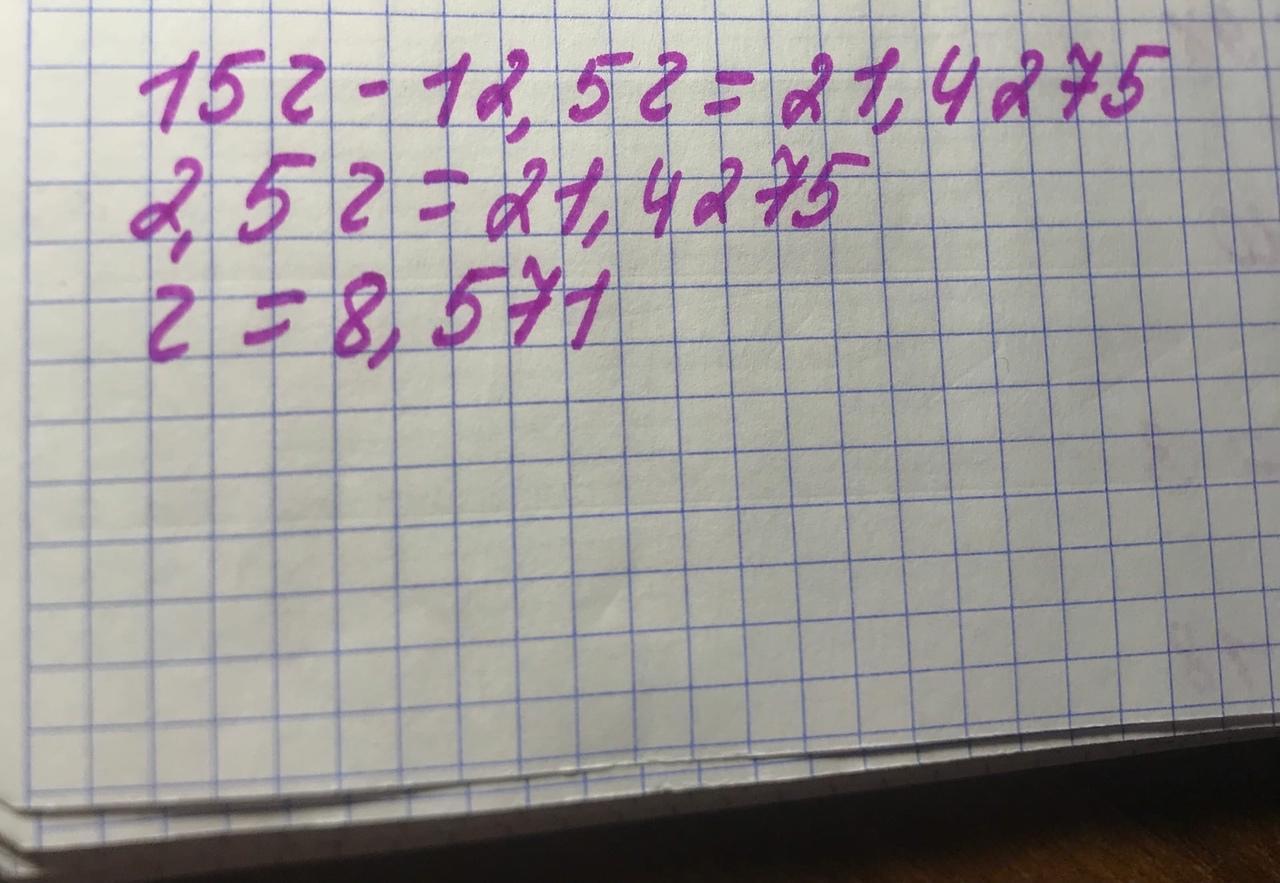 15г - 12,5г = 21,4275
2,5г = 21,4275
г = 8,571